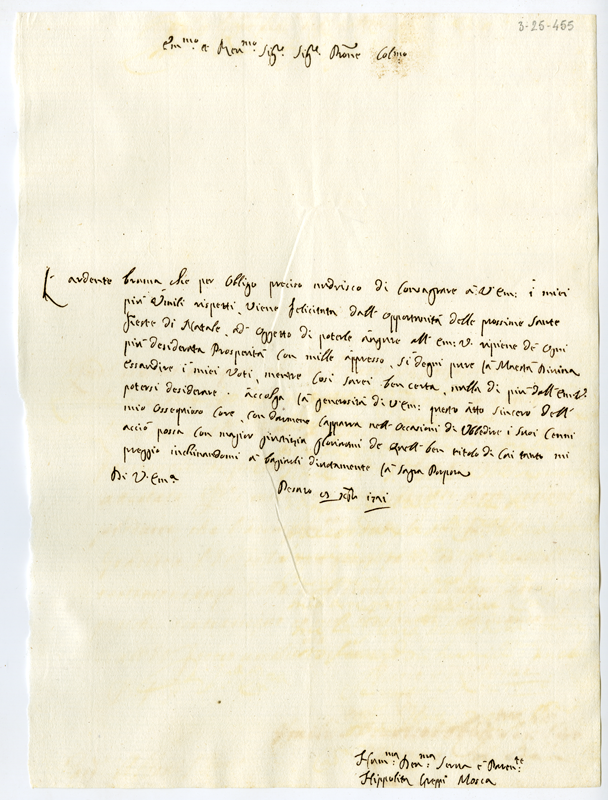 3-25-455
Em.mo e Rev.mo Sig.r Sig.r Prone Colmo
L'ardente brama che per obligo preciso nudrisco di consagrare a V. Em: i miei
più Umili rispetti, viene felicitata dall' opportunità delle prossime Sante
Feste di Natale, ad oggetto di poterle augurare all' Em: V. ripiene d' ogni
più desiderata Prosperità con mille appresso. Si degni pure la Maestà Divina
essaudire i miei Voti, mentre così sarei ben certa, nulla di più dall' Em: V.
potersi desiderare. Accolga la generosità di V. Em: questo atto sincero dell'
mio Ossequioso Core, con darmene caparra nell' Occasioni di Ubbidire i suoi Cenni
acciò possa con maggior giustizia gloriarmi de quell ben titolo di cui tanto mi
preggio inchinandomi a baggiarli divotamente la Sagra Porpora
Di V. Em.a
Pesaro
Hum.ma Dev.ma Serva e Parente
Hippolita Mosca